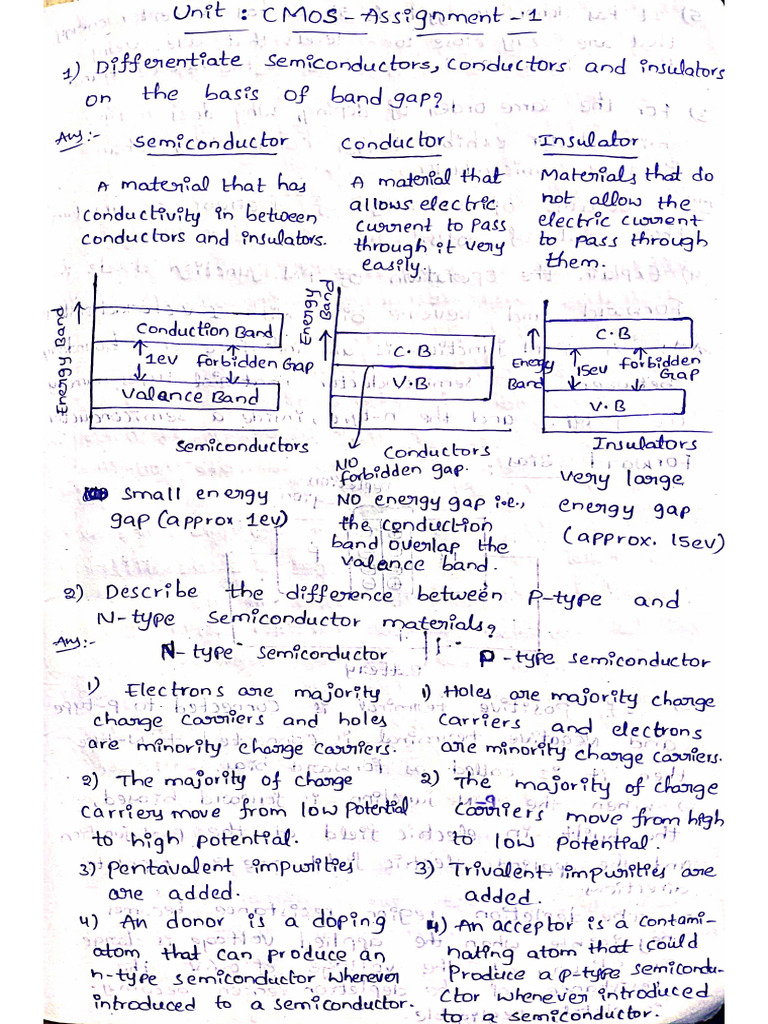 Unit : CMOS - Assignment - 1
1) Differentiate semiconductors, conductors and insulators
on the basis of band gap?
Ans:-
Semiconductor
A material that has
conductivity in between
conductors and insulators.
Conductor
A material that
allows electric
current to pass
through it very
easily.
Insulator
Materials that do
not allow the
electric current
to pass through
them.
Energy Band
Conduction Band
1ev Forbidden Gap
Valance Band
Semiconductors
Energy Band
C.B
V.B
Conductors
NO
forbidden gap.
Energy
Band
C.B
15ev forbidden
Gap
V.B
Insulators
Small energy
gap (approx 1ev)
NO energy gap i.e.,
the conduction
band overlap the
valance band.
very large
energy gap
(approx. 15ev)
2) Describe the difference between P-type and
N-type semiconductor materials?
Ans:-
N-type semiconductor
1) Electrons are majority
charge carriers and holes
are minority charge carriers.
2) The majority of charge
carriers move from low potential
to high potential.
3) Pentavalent impurities
are added.
4) An donor is a doping
atom that can produce an
n-type semiconductor whenever
introduced to a semiconductor.
P-type semiconductor
1) Holes are majority charge
carriers and electrons
are minority charge carriers.
2) The majority of charge
carriers move from high
to low potential.
3) Trivalent impurities are
added.
4) An acceptor is a contami-
nating atom that could
produce a p-type semicondu-
ctor whenever introduced
to a semiconductor.